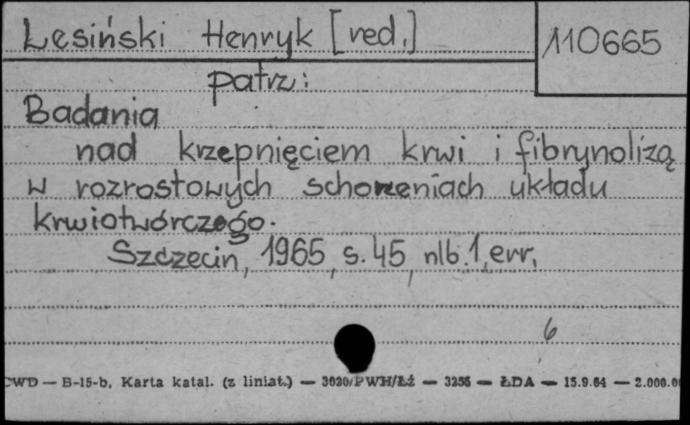 Lesiński Henryk [red.]
110665
patrz:
Badania
nad krzepnięciem krwi i fibrynolizą
w rozrostowych schorzeniach układu
krwiotwórczego.
Szczecin, 1965, s. 45, nlb. 1, err.
6
CWD — B-15-b, Karta katal. (z liniat.) — 3020/PWH/Łź — 3256 — ŁDA — 15.9.64 — 2.000.0